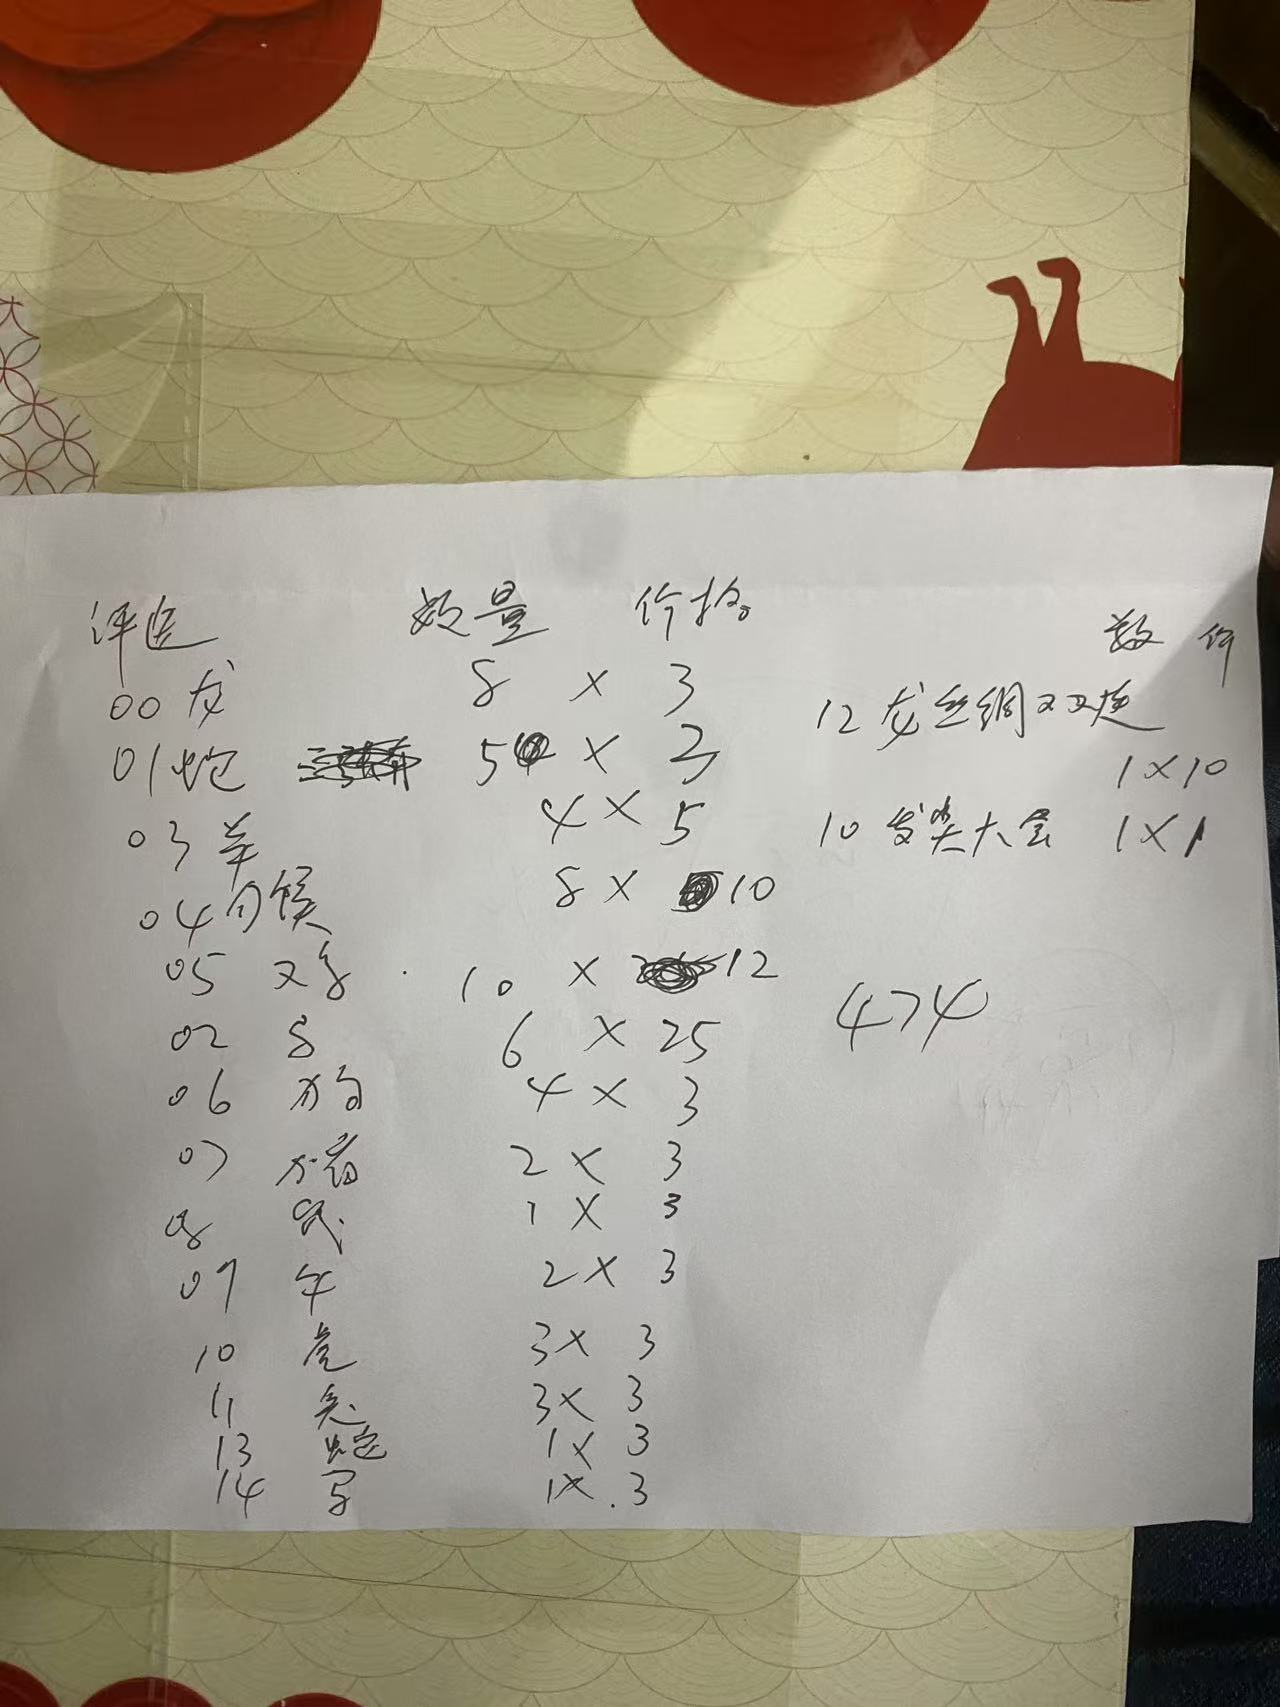 评选 数量 价格
00 龙 8 × 3
01 蛇 5 × 3
03 羊 4 × 5
04 猴 8 × 10
05 鸡 10 × 12
02 马 6 × 25
06 狗 4 × 3
07 猪 2 × 3
08 鼠 1 × 3
09 牛 2 × 3
10 虎 3 × 3
11 兔 3 × 3
13 蛇 1 × 3
14 马 1 × 3
数 价
12 龙丝绸双连
1 × 10
10 大会 1 × 1
474